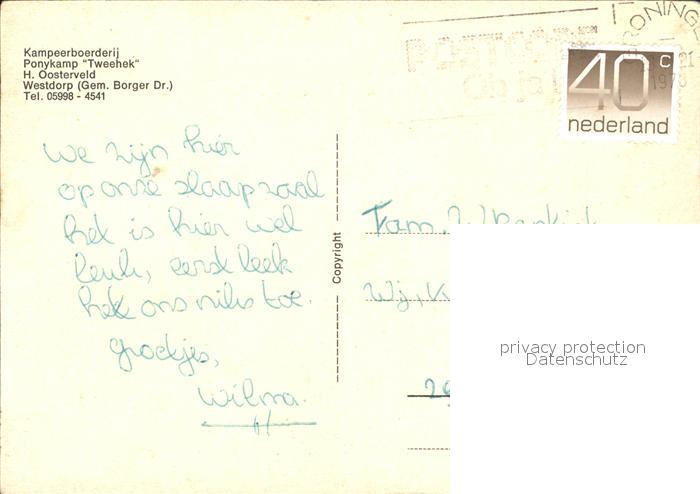 Kampeerboerderij
Ponykamp "Tweehek"
H. Oosterveld
Westdorp (Gem. Borger Dr.)
Tel. 05998 - 4541
POSTCODE
Oh ja!
GRONINGEN
21
197
40 c
nederland
we zijn hier
op onze slaapzaal
het is hier wel
leuk, eerst leek
het ons niks toe.
groetjes,
Wilma.
Copyright
Fam.
privacy protection
Datenschutz